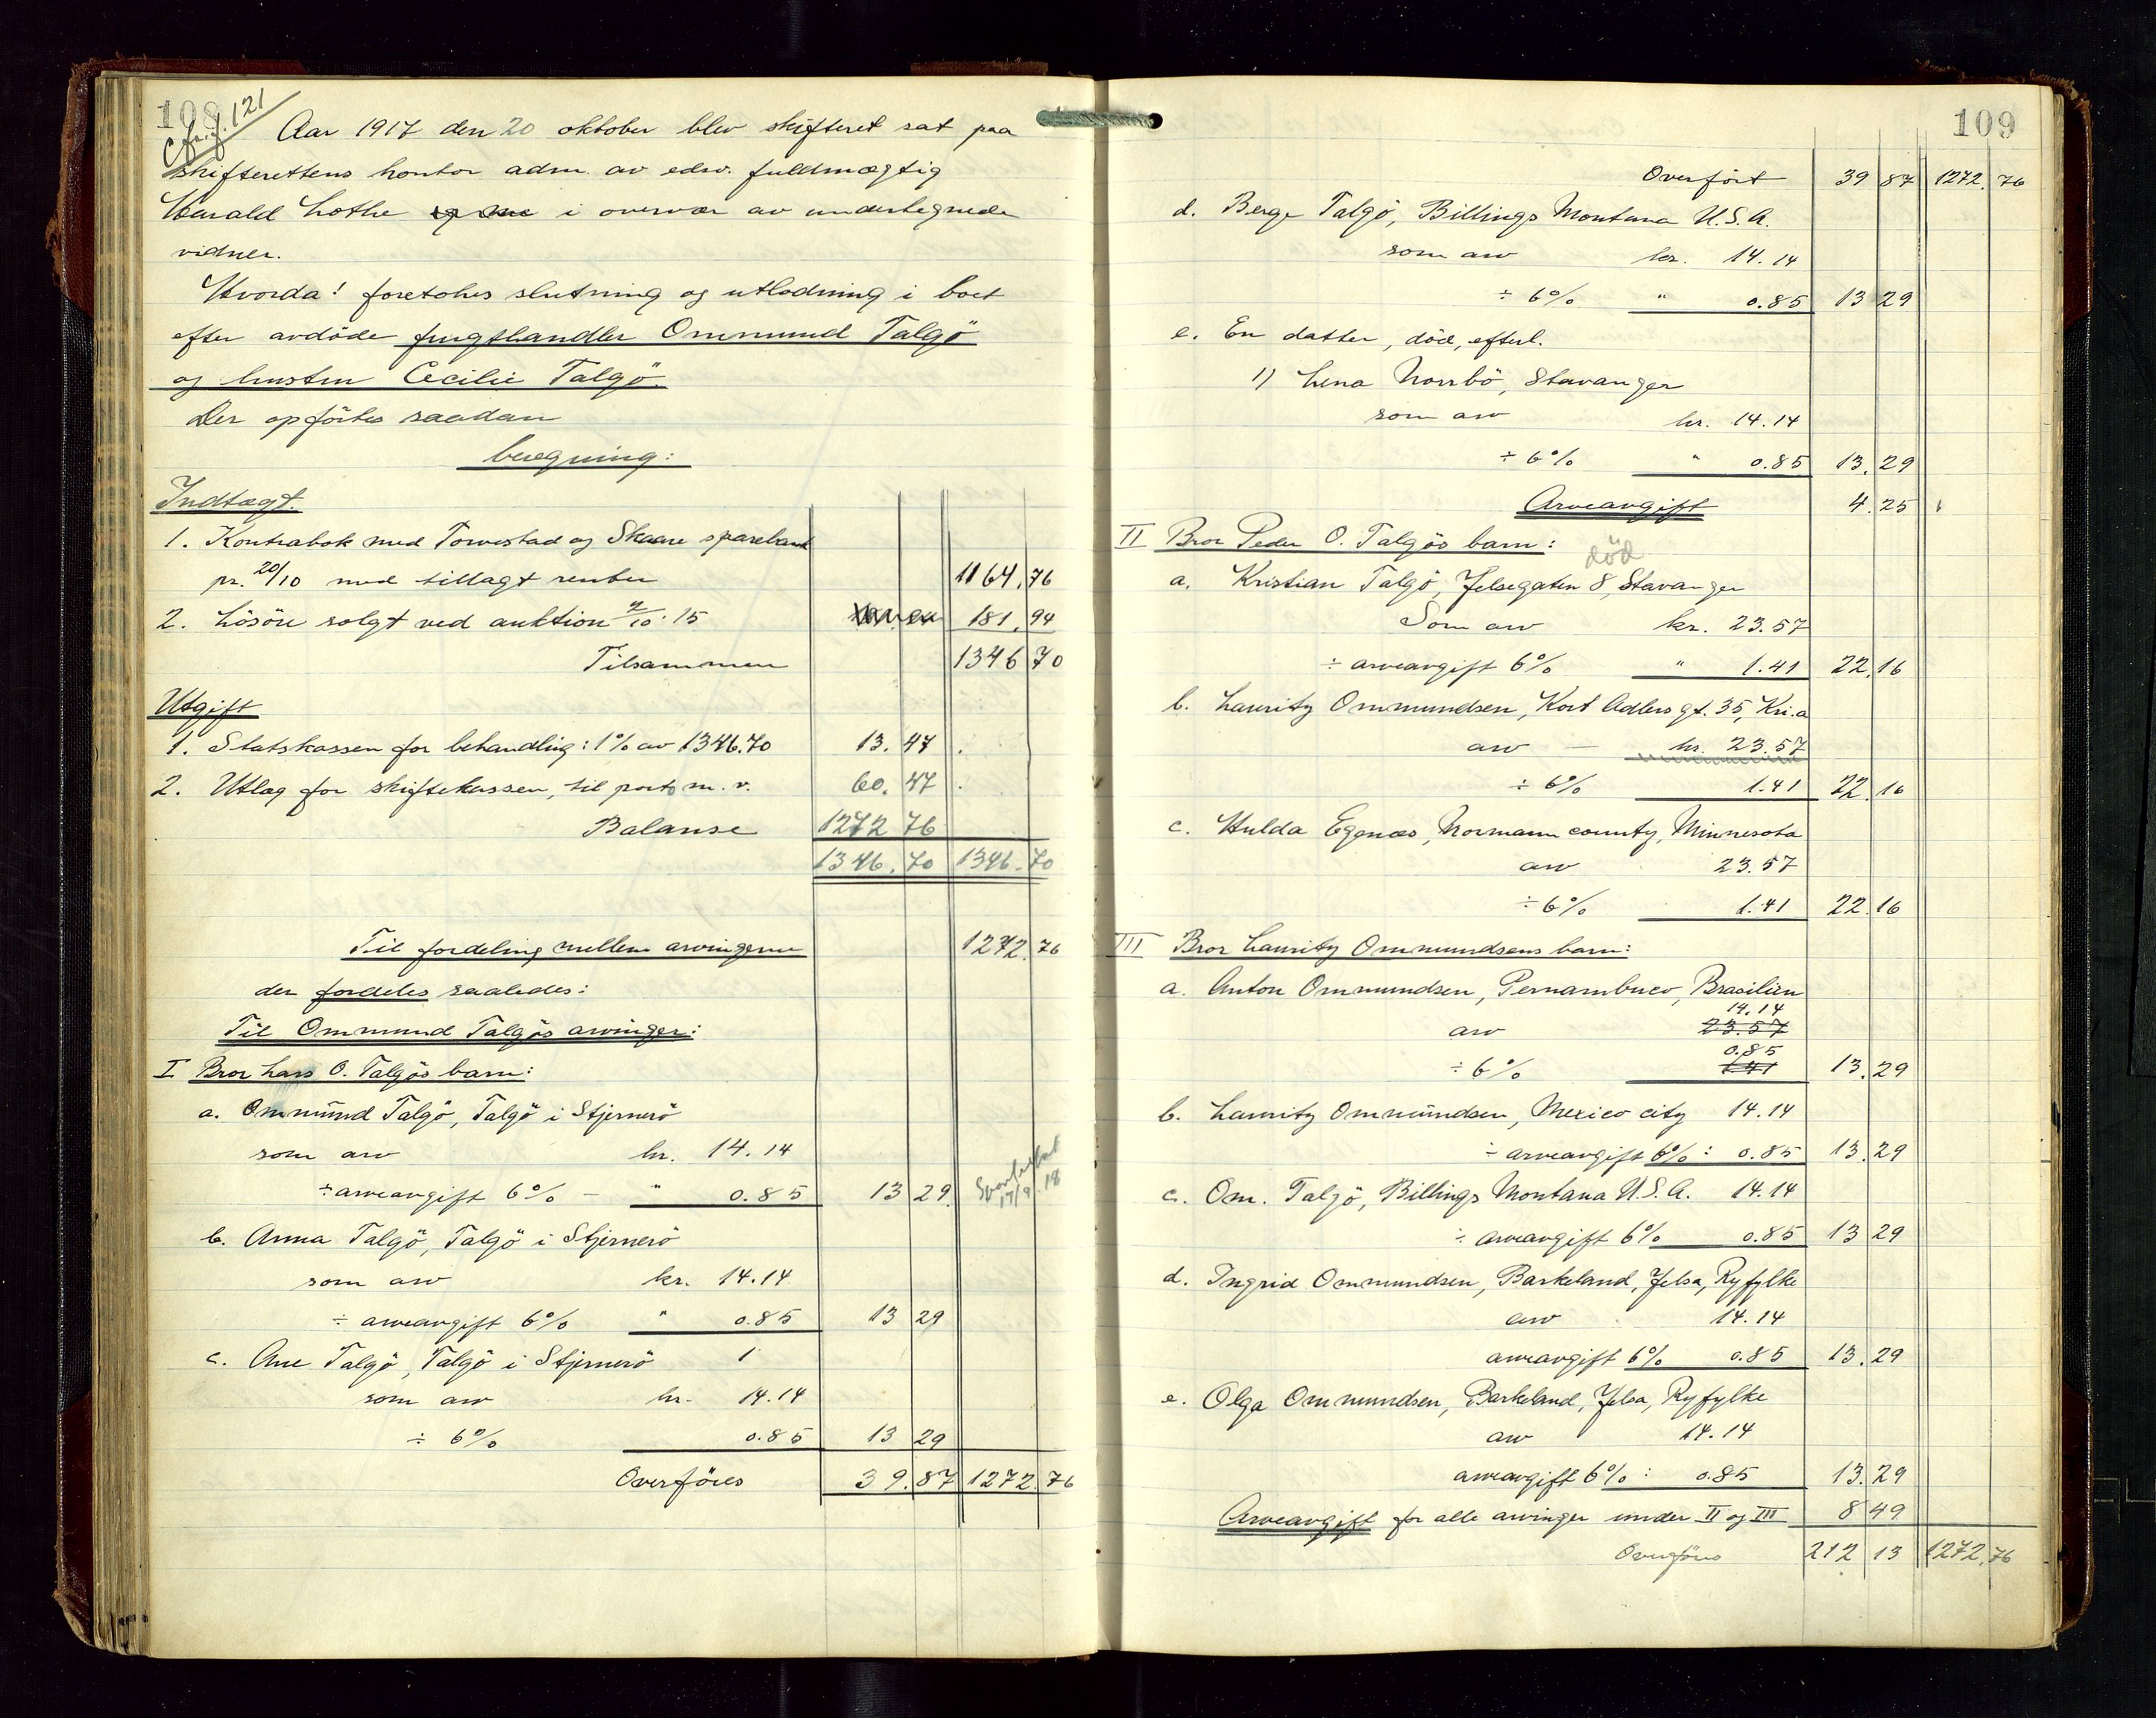 108
Cfrfj. 121
Aar 1917 den 20 oktober blev skifteret sat paa
skifterettens kontor adm. av edsv. fuldmægtig
Harald Lothe i overvær av undertegnede
vidner.
Hvorda! foretokes slutning og utlodning i boet
efter avdöde Ommund Talgö
og hustru Cecilie Talgö.
Der opförtes saadan
beregning:
Indtægt.
1. Kontrabok med Torvestad og Skaare sparebank
pr. 20/10 med tillagt renter 1164.76
2. Lösöre solgt ved auktion 2/10.15 181.94
Tilsammen 1346 70
Utgift
1. Statskassen for behandling: 1% av 1346.70 13.47
2. Utlæg for skiftekassen, til porto m.v. 60.47
Balanse 1272 76
1346.70 1346.70
Til fordeling mellem arvingerne 1272.76
der fordeles saaledes:
Til Ommund Talgös arvinger:
I Bror Lars O. Talgös barn:
a. Ommund Talgö, Talgö i Stjernerö
som arv kr. 14.14
÷ arveavgift 6% - " 0.85 13 29.
17/9.18
b. Anna Talgö, Talgö i Stjernerö
som arv kr. 14.14
÷ arveavgift 6% " 0.85 13 29
c. Ane Talgö, Talgö i Stjernerö 1
som arv kr. 14.14
÷ 6% 0.85 13 29
Overföres 39.87 1272.76
109
Overfört 39 87 1272.76
d. Berge Talgö, Billings Montana U.S.A.
som arv kr. 14.14
÷ 6% " 0.85 13 29
e. En datter, död, efterl.
1) Lena Norrbö, Stavanger
som arv kr. 14.14
÷ 6% " 0.85 13.29
Arveavgift 4.25
II Bror Peder O. Talgös barn:
död
a. Kristian Talgö, Jelsegaten 8, Stavanger
Som arv kr. 23.57
÷ arveavgift 6% " 1.41 22.16
b. Lauritz Ommundsen, Kort Adlers gt. 35, Kr.a
arv — kr. 23.57
÷ 6% 1.41 22.16
c. Hulda Egenæs, Normann county, Minnesota
arv 23.57
÷ 6% 1.41 22.16
III Bror Lauritz Ommundsens barn:
a. Anton Ommundsen, Pernambuco, Brasilien
14.14
arv 23.57
0.85
÷ 6% 1.41 13.29
b. Lauritz Ommundsen, Mexico city 14.14
÷ arveavgift 6%: 0.85 13.29
c. Om. Talgö, Billings Montana U.S.A. 14.14
÷ arveavgift 6% 0.85 13 29
d. Ingrid Ommundsen, Barkeland, Jelsa, Ryfylke
arv 14.14
arveavgift 6% 0.85 13.29
e. Olga Ommundsen, Barkeland, Jelsa, Ryfylke
arv 14.14
arveavgift 6%: 0.85 13.29
Arveavgift for alle arvinger under II og III 8 49
Overföres 212 13 1272.76